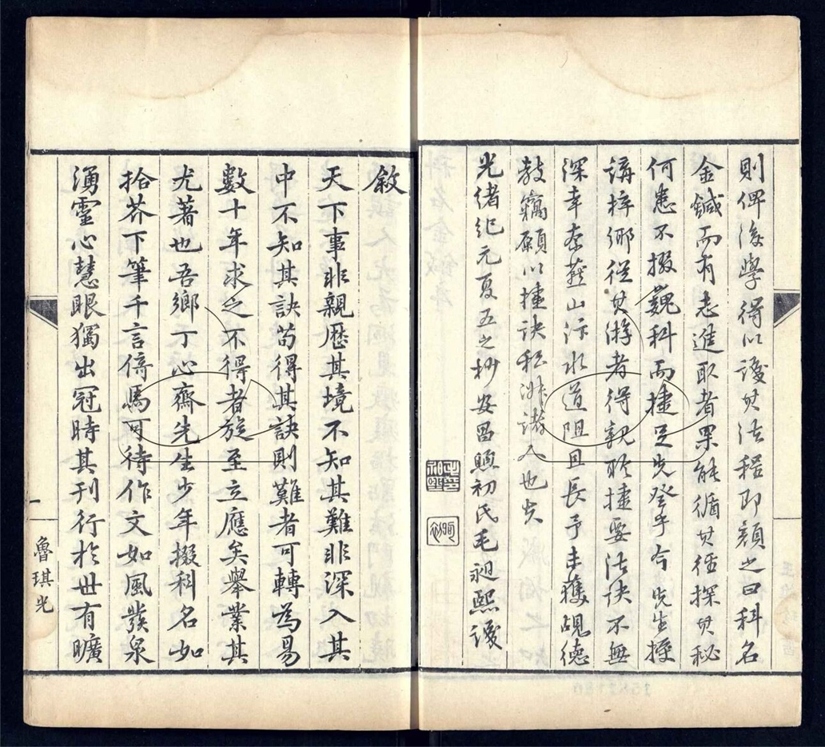 則俾後學得以後其法程即顏之曰科名
金鍼而有志進取者果能循其徑探其秘
何患不掇巍科而捷足先登乎今先生授
講梓鄉從其游者得親聆捷要法訣不無
深幸奈燕山汴水道阻且長予未獲覿德
教竊願以捷訣私淑諸人也矣
光緒紀元夏五之抄安邑煦初氏毛昶熙後
敘
天下事非親歷其境不知其難非深入其
中不知其訣苟得其訣則難者可轉為易
數十年求之不得者旋至立應矣舉業其
尤著也吾鄉丁心齋先生少年掇科名如
拾芥下筆千言倚馬可待作文如風發泉
湧靈心慧眼獨出冠時其刊行於世有曠
一
魯琪光